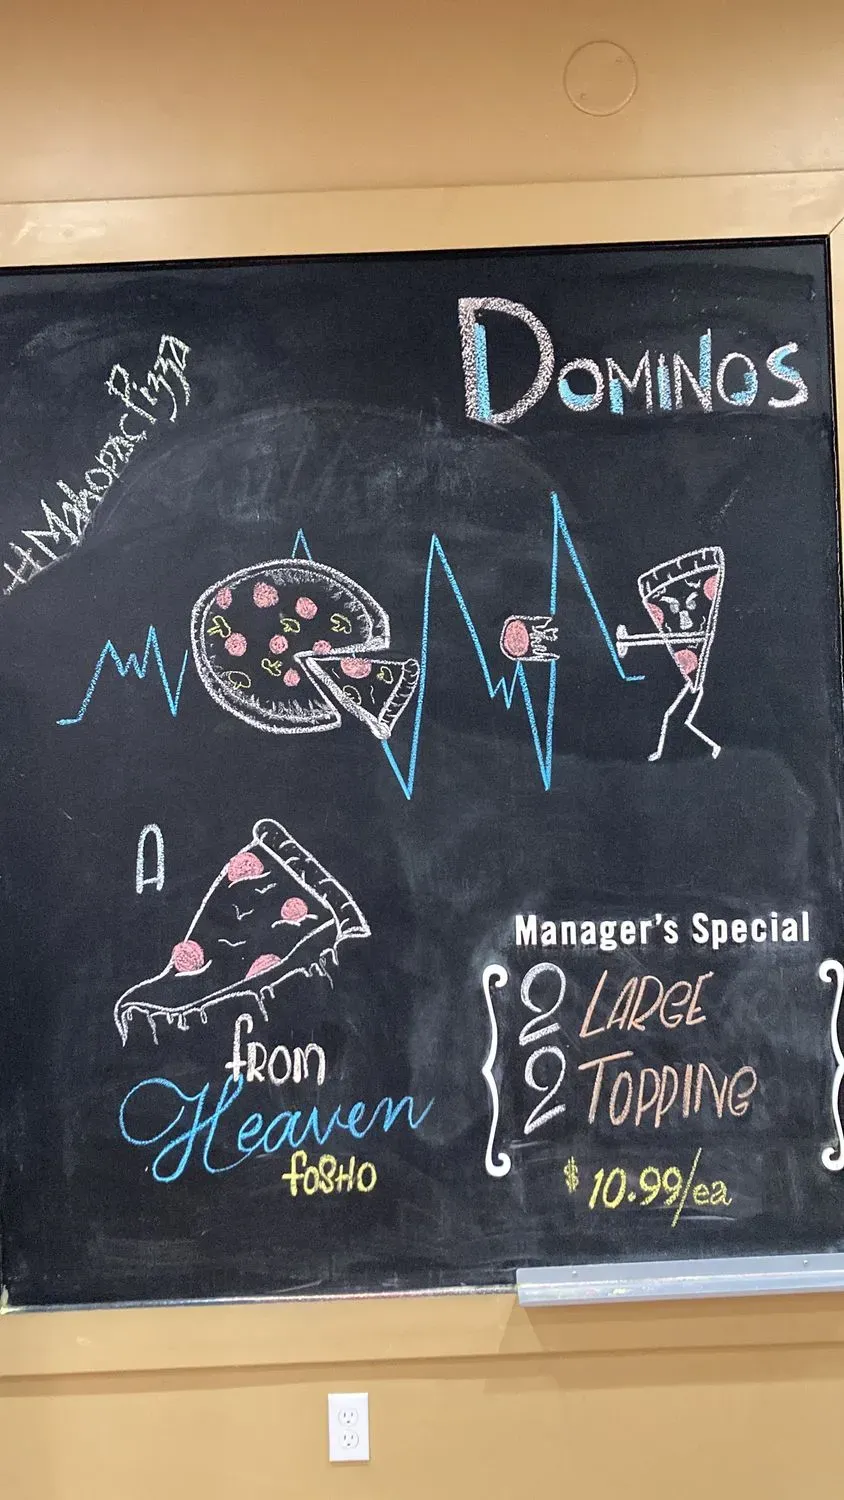 DOMINOS
#MahopacPizza
A
from
Heaven
foSHO
Manager's Special
2 LARGE
2 TOPPING
$10.99/ea